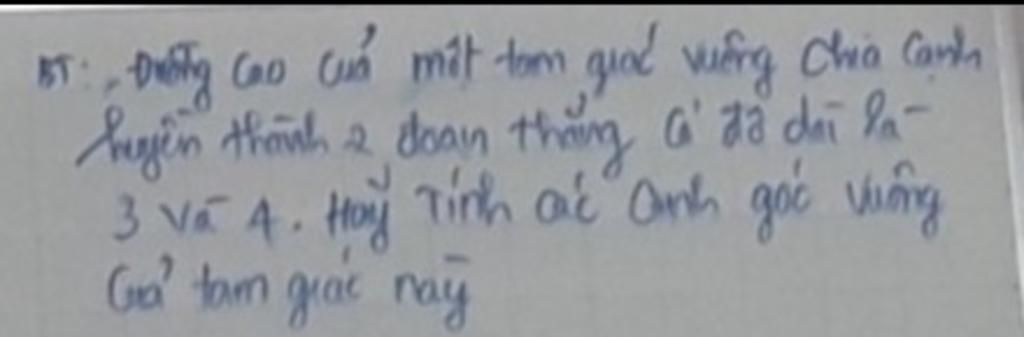 BT: Đường cao của một tam giác vuông chia cạnh
huyền thành 2 đoạn thẳng có độ dài là
3 và 4. Hãy Tính các cạnh góc vuông
của tam giác này